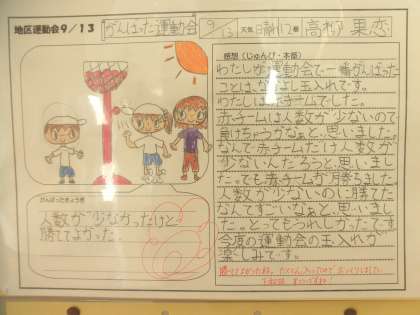 地区運動会9/13
がんばった運動会
9/13 天気 晴れ 2年 高杉 果恋
感想(じゅんび・本番)
わたしが運動会で一番がんばった
ことは、なかよし玉入れです。
わたしは、赤チームでした。
赤チームは人数が少ないので
負けちゃうかなぁと、思いました。
なんで赤チームだけ人数が
少ないんだろうと、思いまし
た。でも赤チームが勝ちました。
人数が少ないのに勝てた
なんてすごいなぁと、思いまし
た。とってもうれしかったです
今度の運動会の玉入れが
楽しみです。
がんばったきょうぎ
人数が少なかったけど
勝ててよかった。